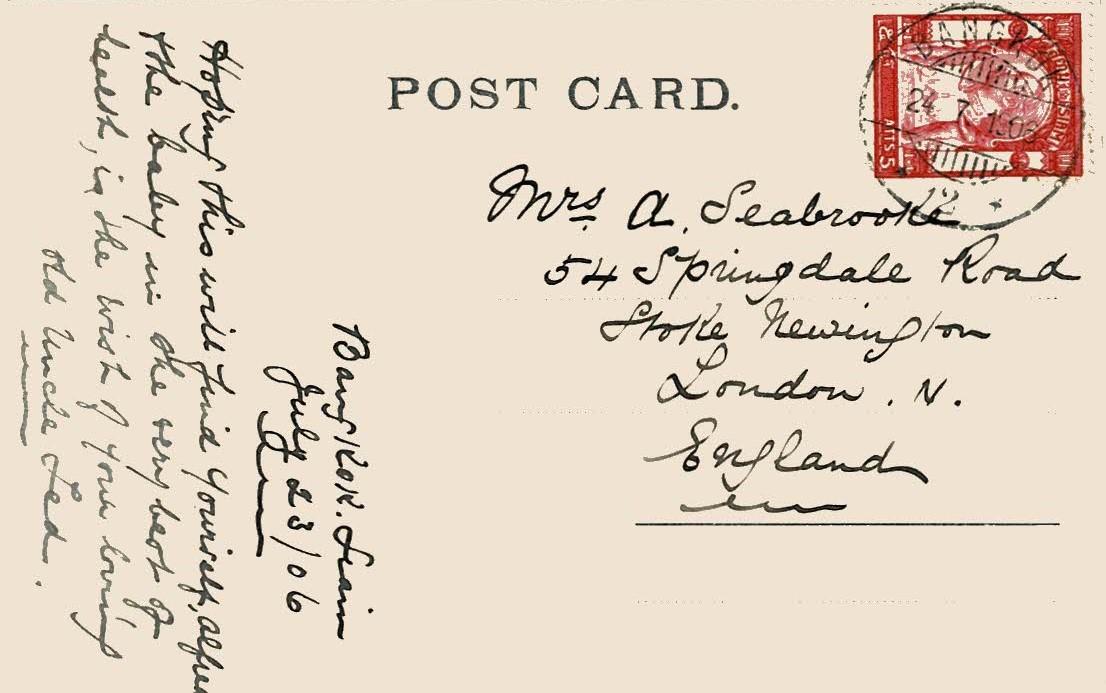 POST CARD.
BANGKOK
24 7 1906
12
ATTS 5
Mrs A. Seabrooke
54 Springdale Road
Stoke Newington
London. N.
England
Bangkok. Siam
July 23/06
Hoping this will find yourself, alfre
the baby in the very best of
health, is the wish of your loving
old Uncle Ted.